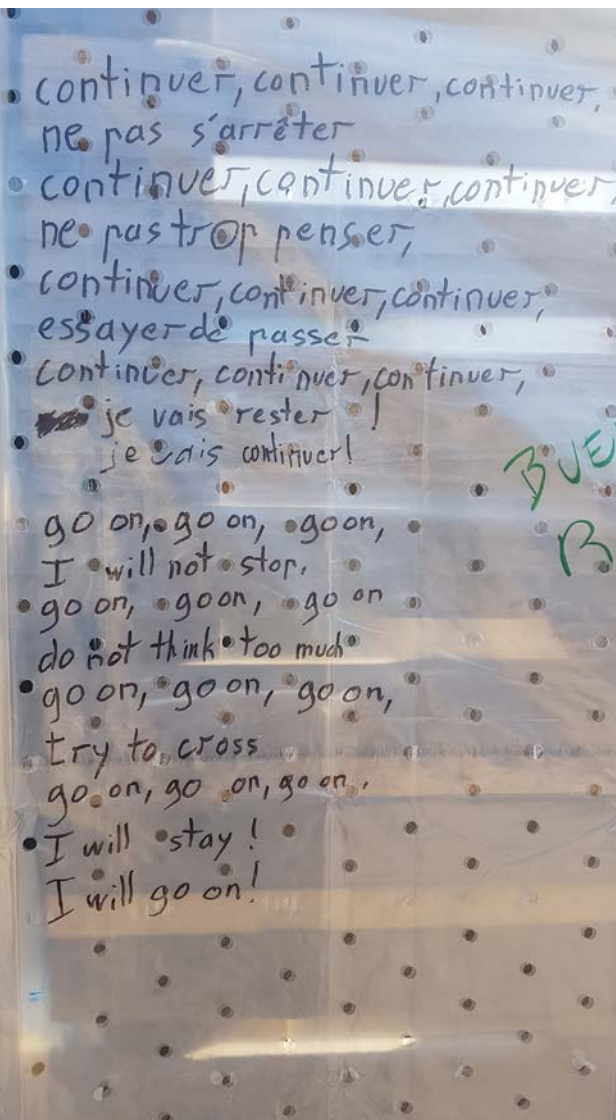 continuer, continuer, continuer,
ne pas s'arrêter
continuer, continuer, continuer,
ne pas trop penser,
continuer, continuer, continuer,
essayer de passer
continuer, continuer, continuer,
je vais rester !
je vais continuer!
go on, go on, go on,
I will not stop.
go on, go on, go on
do not think too much
go on, go on, go on,
try to cross
go on, go on, go on.
I will stay !
I will go on!